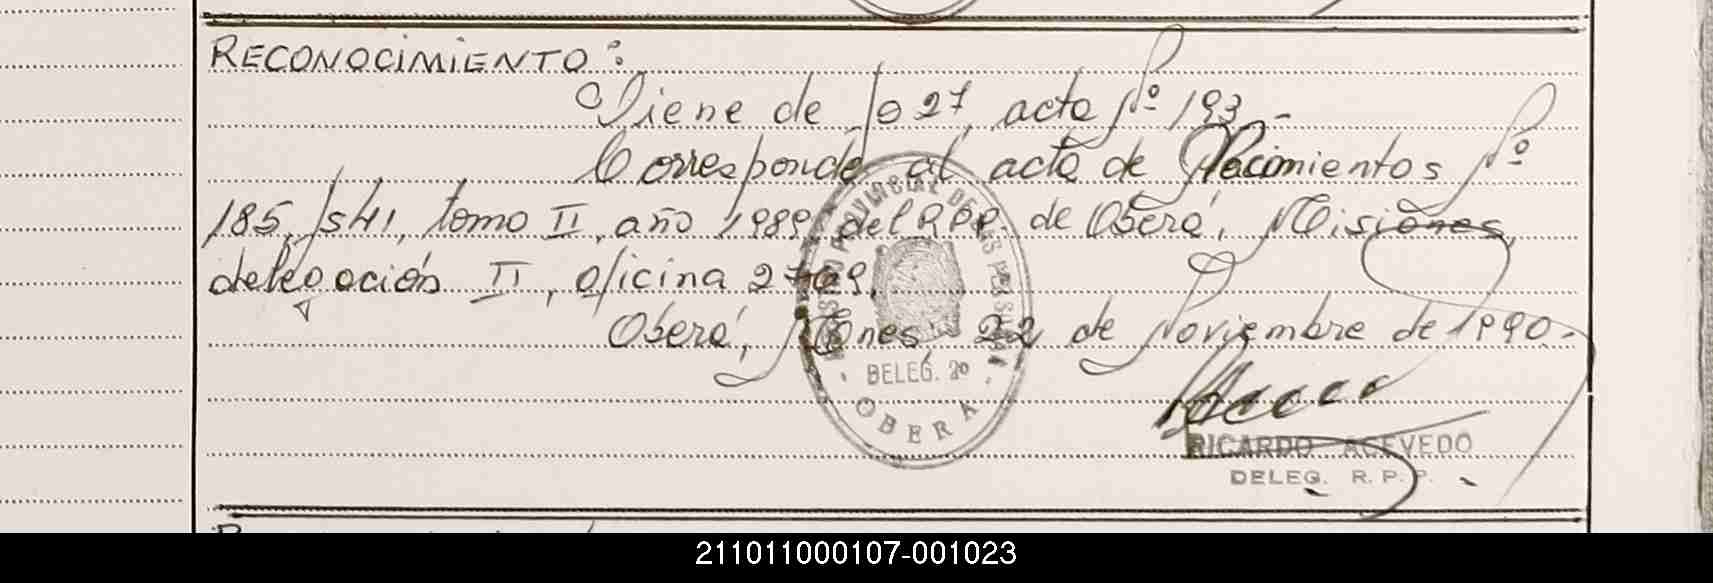 RECONOCIMIENTO:
Viene de fo 27, acta Nº 193.-
Corresponde al acta de Nacimientos Nº
185, fs 41, tomo II, año 1989, del R.P.P. de Oberá, Misiones,
delegación II, oficina 2709.
Oberá, Mnes, 22 de Noviembre de 1990.-
DELEG. 2º
OBERA
RICARDO ACEVEDO
DELEG. R. P. P.
211011000107-001023